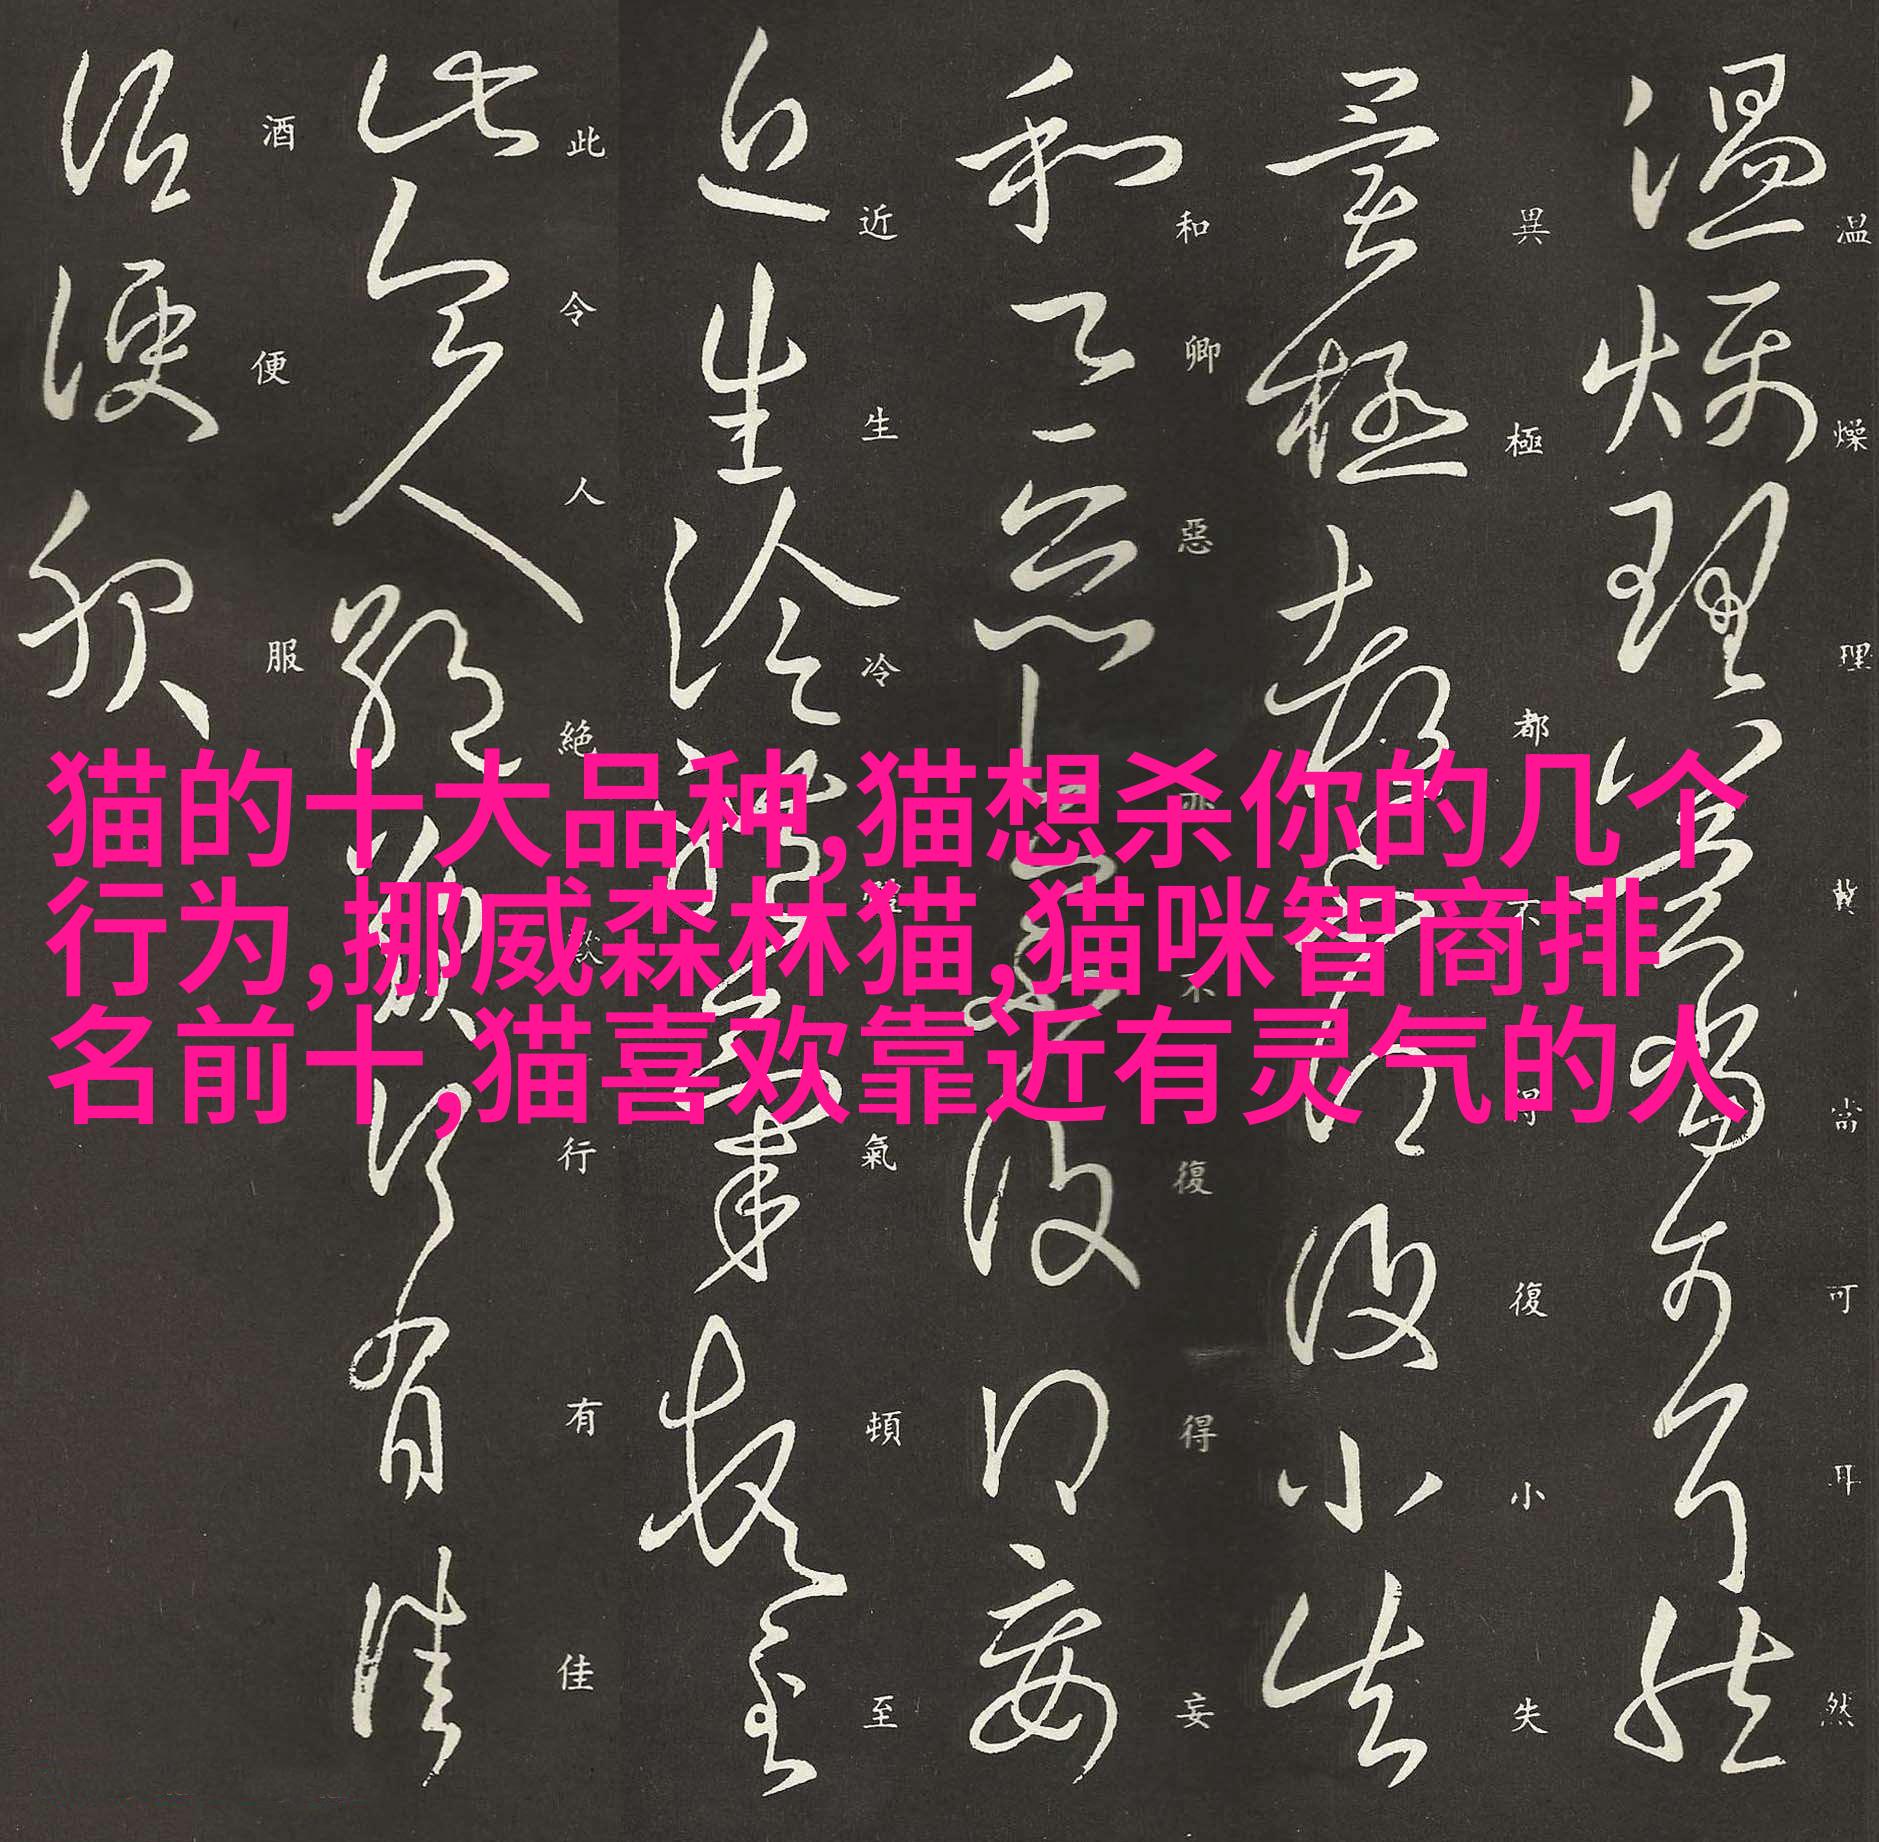 猫的十大品种,猫想杀你的几个
行为,挪威森林猫,猫咪智商排
名前十,猫喜欢靠近有灵气的人
温燥理冀當可耳然
異極都不得復小失
和卿惡亦不復得妄
近生冷體氣頓至
此令人絶歎行有佳
酒便服